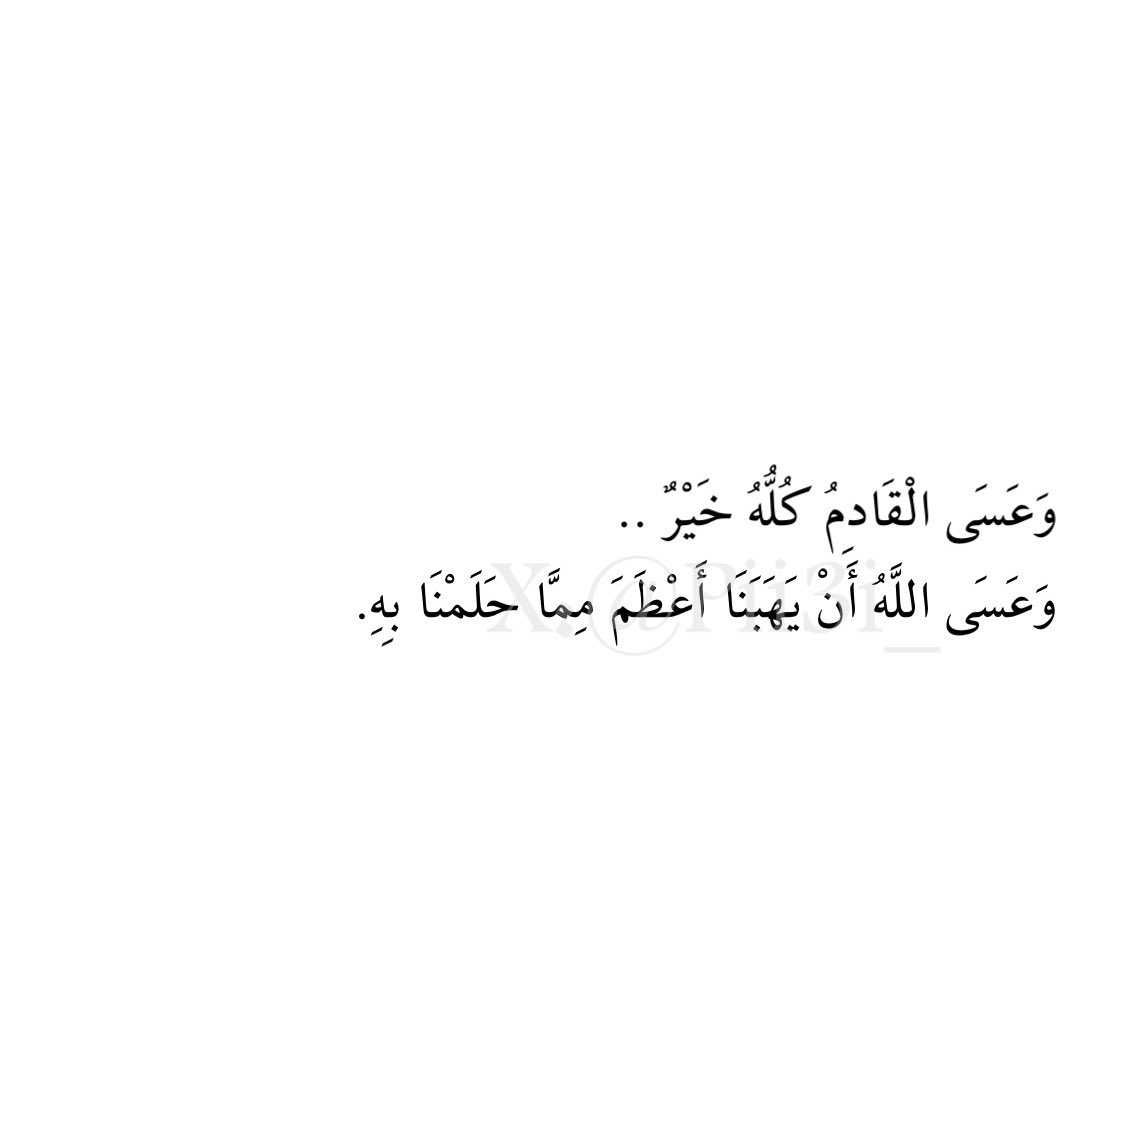 وَعَسَى الْقَادِمُ كُلُّهُ خَيْرٌ ..
وَعَسَى اللَّهُ أَنْ يَهَبَنَا أَعْظَمَ مِمَّا حَلَمْنَا بِهِ.
X.@Pii3i_